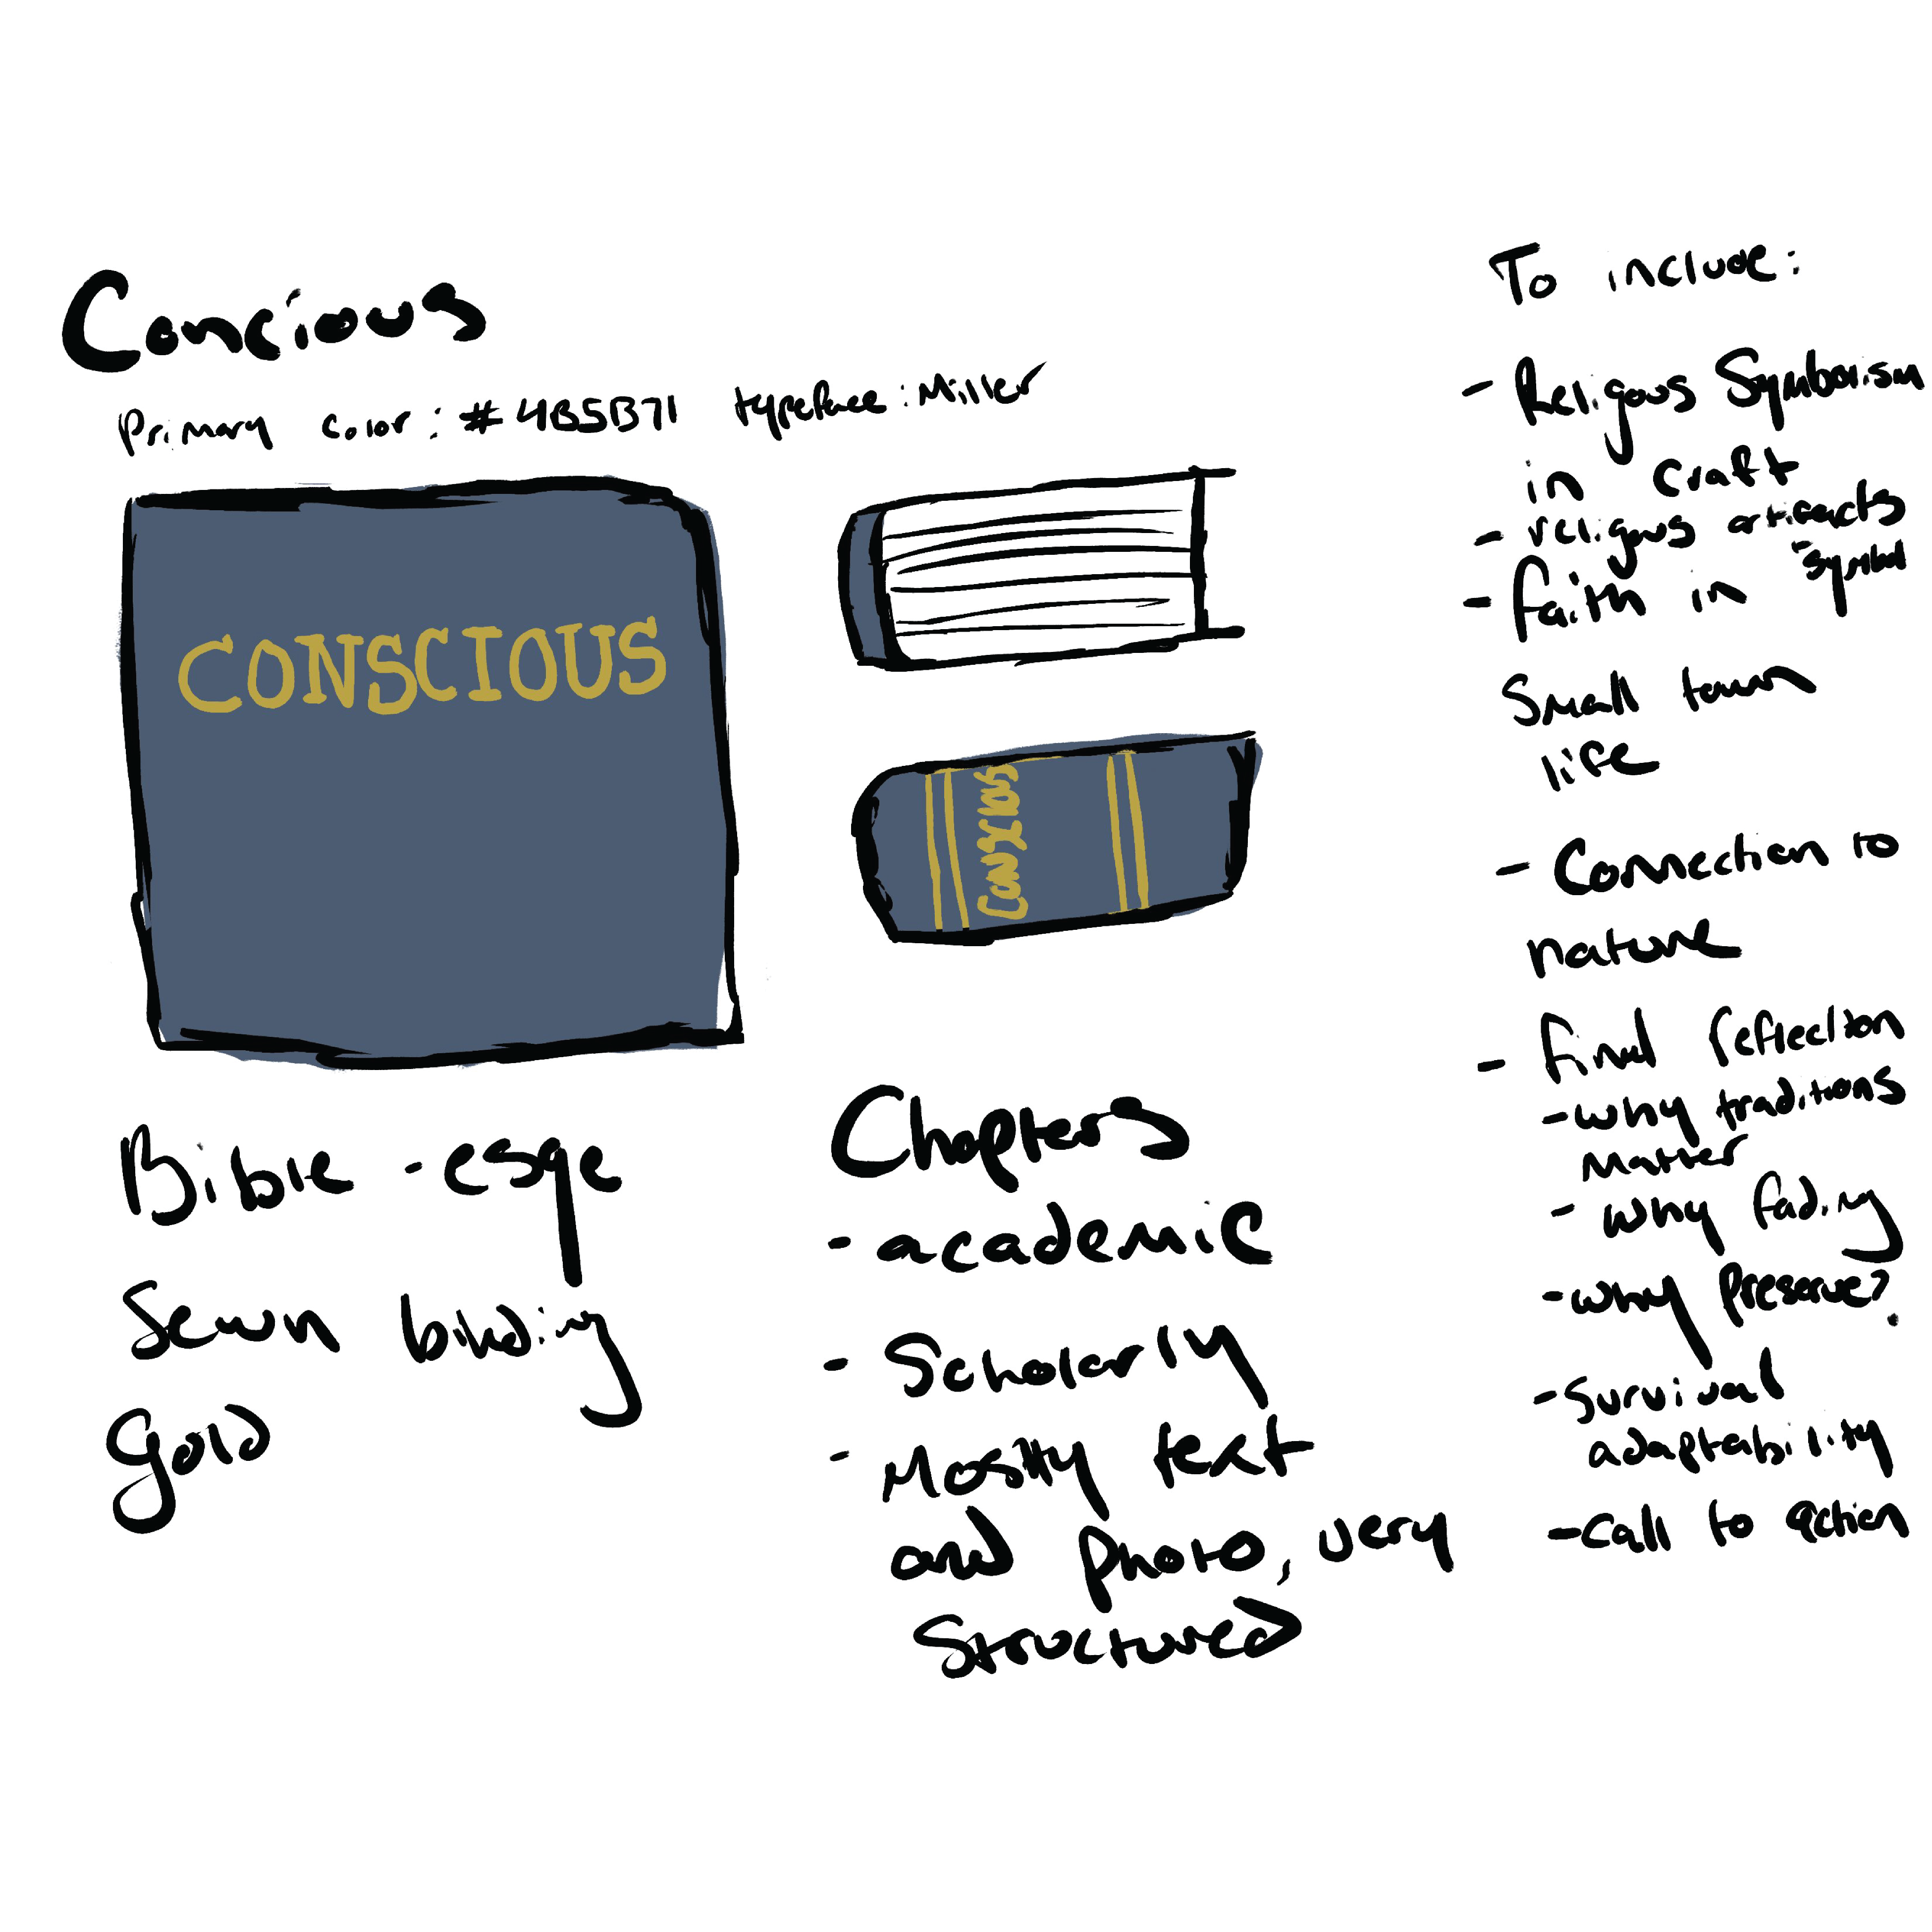 Concious
Primary color: #4B5B71 typeface: Miller
CONSCIOUS
CONSCIOUS
Bible-esqe
Sewn binding
Gold
Chapters
- academic
- Scholarly
- Mostly text
and photo, very
structured
To include:
- Religous Symbolism
in craft
- religous artifacts
- Faith in symbol
Small town
life
- Connection to
nature
- Final reflection
- why traditions
matter
- why fading
- why preserve?
- survival
adaptability
- call to action